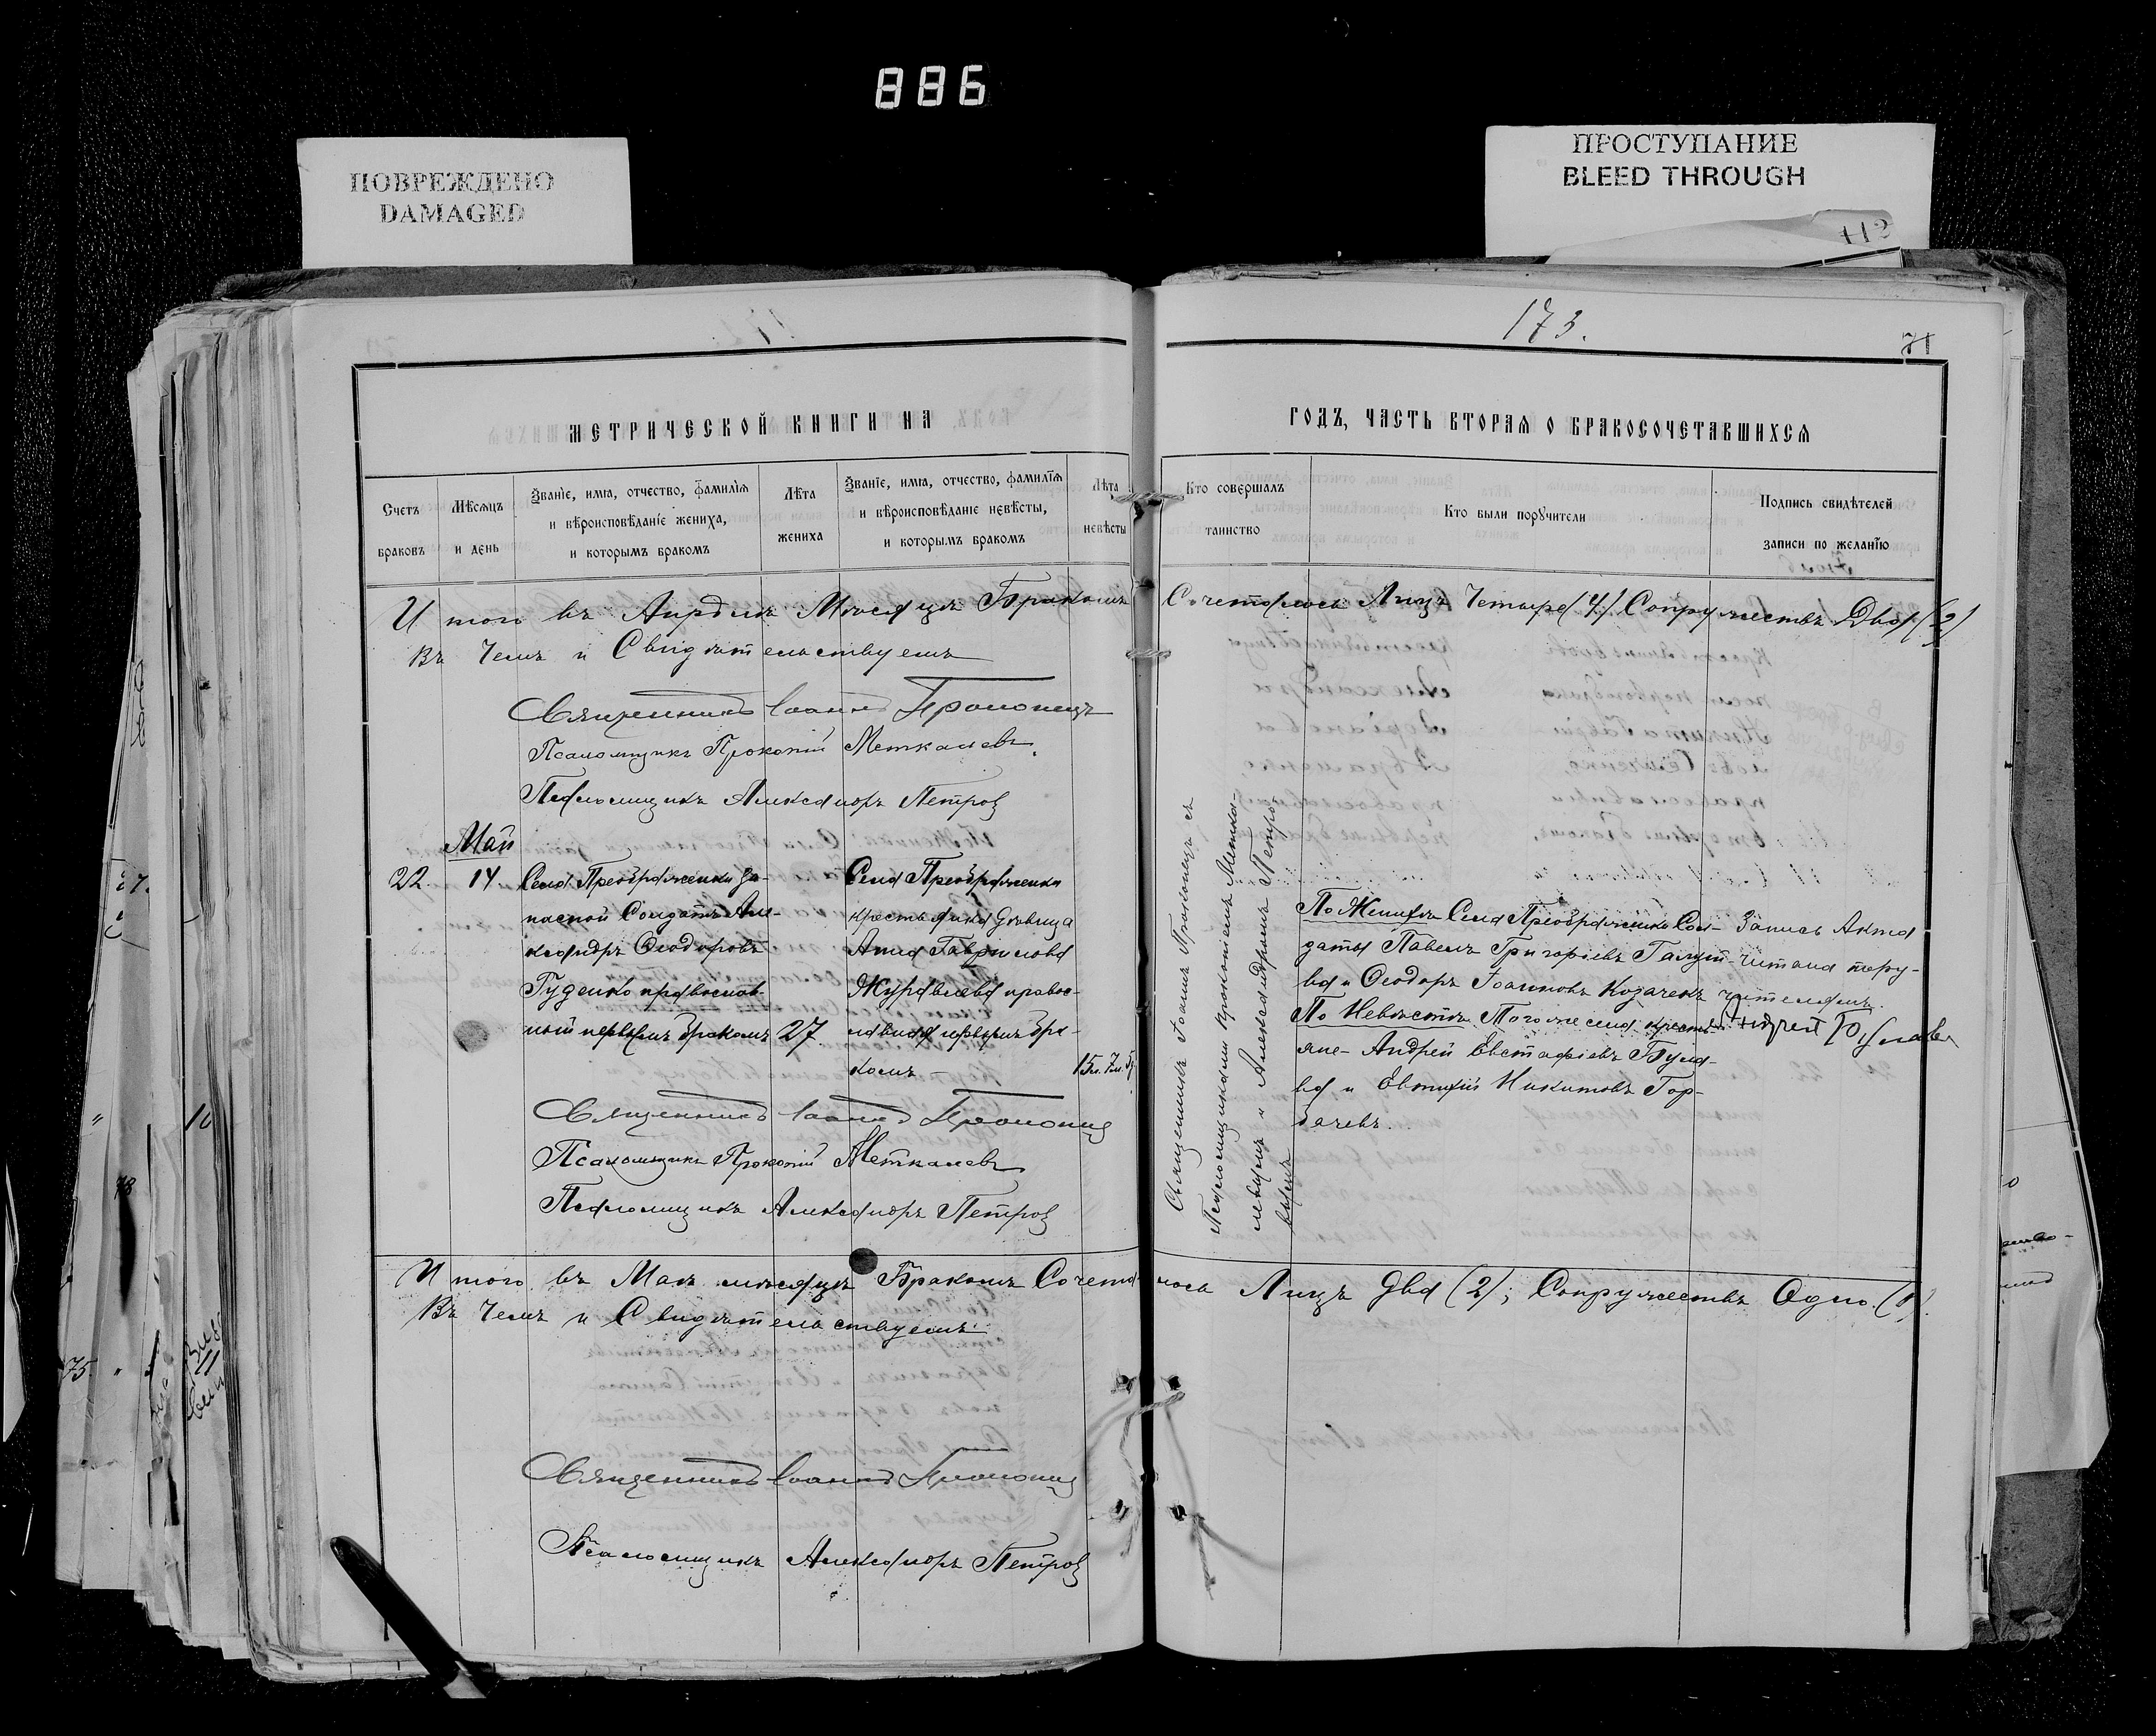 886
ПОВРЕЖДЕНО
DAMAGED
ПРОСТУПАНИЕ
BLEED THROUGH
112
173.
71
МЕТРИЧЕСКОЙ КНИГИ НА
ГОДЪ, ЧАСТЬ ВТОРАЯ О БРАКОСОЧЕТАВШИХСЯ
Счетъ
браковъ
Мѣсяцъ
и день
Званіе, имя, отчество, фамилія
и вѣроисповѣданіе жениха,
и которымъ бракомъ
Лѣта
жениха
Званіе, имя, отчество, фамилія
и вѣроисповѣданіе невѣсты,
и которымъ бракомъ
Лѣта
невѣсты
Кто совершалъ
таинство
Кто были поручители
Подпись свидѣтелей
записи по желанію
Итого въ Апрѣлѣ Мѣсяцѣ Бракомъ Сочеталось Лицъ Четыре (4) Сопружествъ Два (2)
Въ Чемъ и Свидѣтельствуемъ
Священникъ Іоаннъ Прокопецъ
Псаломщикъ Прокопій Меткалевъ.
Псаломщикъ Александръ Петров
Май
22
14
Села Преображенки за-
пасной Солдатъ Але-
ксандръ Ѳеодоровъ
Гуденко православ-
ный первымъ бракомъ
27
Села Преображенки
крестьянка дѣвица
Анна Гаврилова
Журавлева правос-
лавная первымъ бра-
комъ –
15л. 7м.
Священникъ Іоаннъ Прокопецъ съ
Псаломщиками Прокопіемъ Метка-
левымъ и Александромъ Петро-
вымъ
По Женихѣ Села Преображенки Сол-
даты Павелъ Григорьевъ Галут-
ва и Ѳеодоръ Іоанновъ Козаченъ
По Невѣстѣ Того же села кресть-
яне - Андрей Евстафіевъ Була-
ва и Евтихій Никитовъ Гор-
бачевъ.
Запись Акта
читана пору-
чителямъ.
Андрей
Священникъ Іоаннъ Прокопец
Псаломщикъ Прокопій Меткалевъ
Псаломщикъ Александръ Петров
Итого въ Маѣ мѣсяцѣ Бракомъ Сочеталось Лицъ Два (2); Сопружествъ Одно. (1).
Въ Чемъ и Свидѣтельствуемъ
Священникъ Іоаннъ Прокопец
Псаломщикъ Александръ Петров